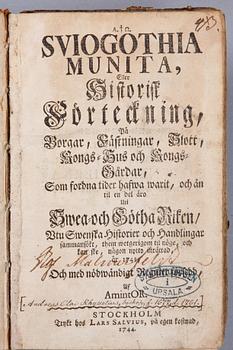 A. † Ω.
SVIOGOTHIA
MUNITA,
Eller
Historisk
Förteckning,
På
Borgar, Fästningar, Slott,
Kongs-Hus och Kongs-
Gårdar,
Som fordna tider hafwa warit, och än
til en del äro
Uti
Swea- och Götha Riken/
Utu Swenska Historier och Handlingar
sammansökt, them wettgirigom til nöge, och
kan ske, någon nytto
Och med nödwändigt Register
af
AmintOR.
UPSALA
STOCKHOLM
Trykt hos LARS SALVIUS, på egen kostnad,
1744.